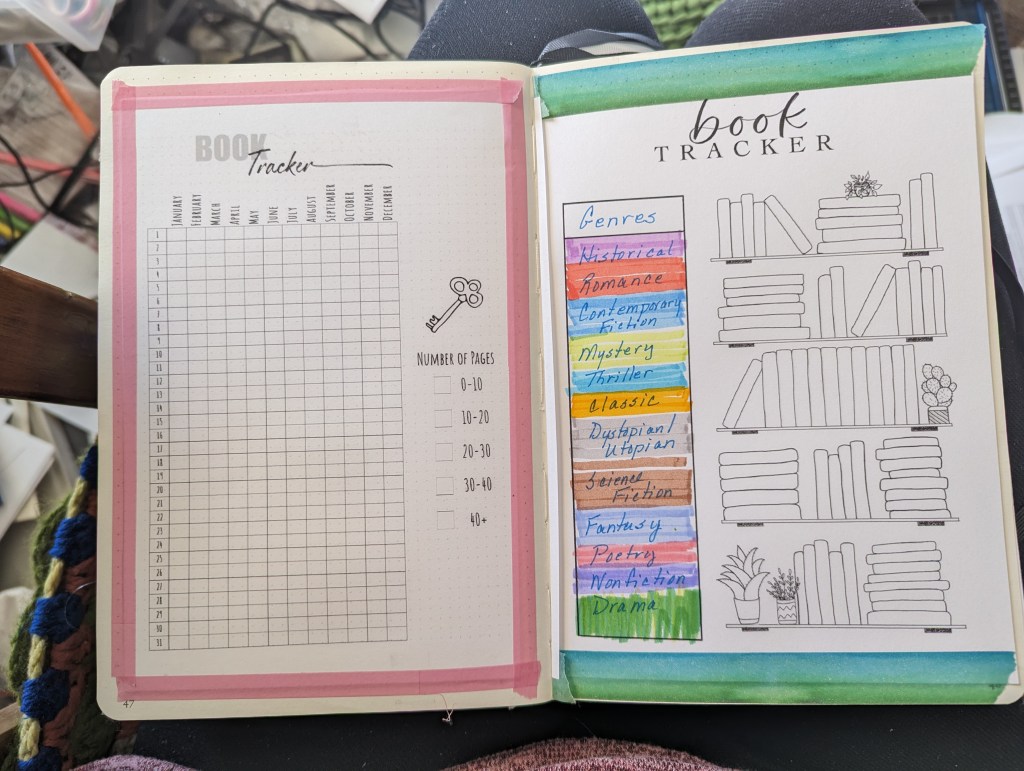 BOOK
Tracker
JANUARY
FEBRUARY
MARCH
APRIL
MAY
JUNE
JULY
AUGUST
SEPTEMBER
OCTOBER
NOVEMBER
DECEMBER
1
2
3
4
5
6
7
8
9
10
11
12
13
14
15
16
17
18
19
20
21
22
23
24
25
26
27
28
29
30
31
NUMBER OF PAGES
0-10
10-20
20-30
30-40
40+
47
book
TRACKER
Genres
Historical
Romance
Contemporary
Fiction
Mystery
Thriller
Classic
Dystopian/
Utopian
Science
Fiction
Fantasy.
Poetry
Nonfiction
Drama